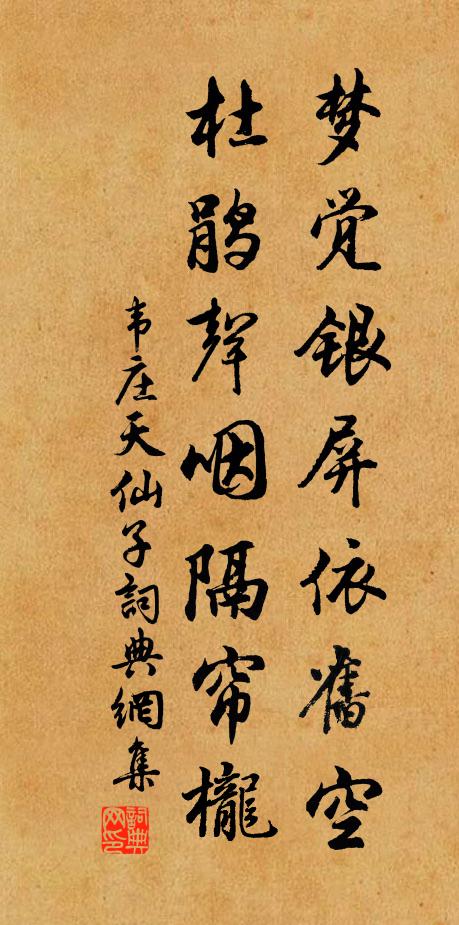 梦觉银屏依舊空
杜鹃聲咽隔帘櫳
韦庄天仙子詞典網集
詞典
网印